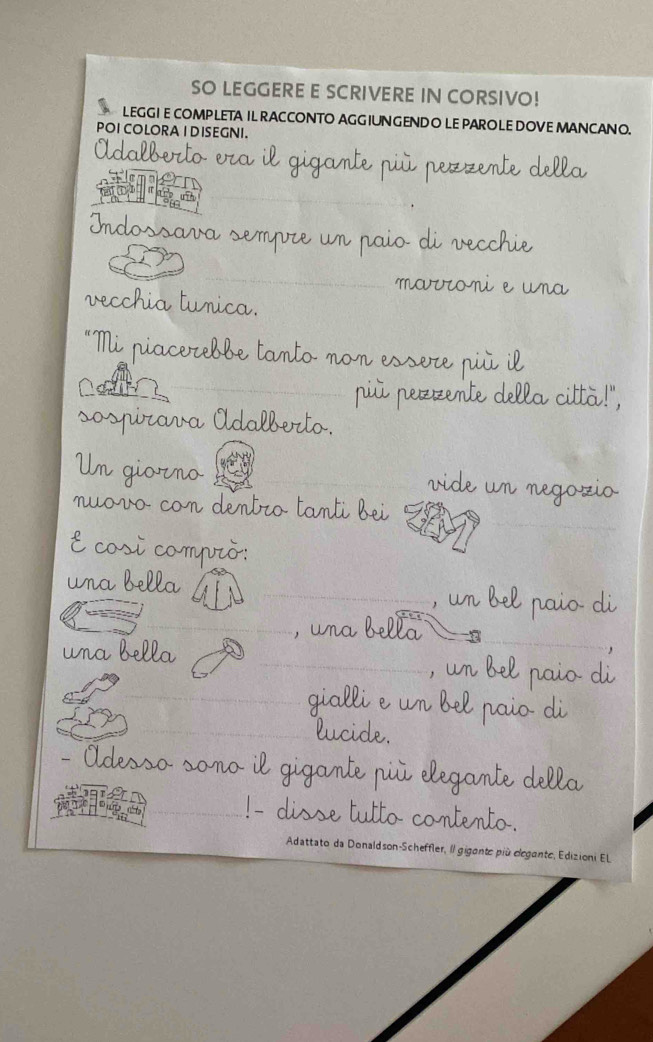 SO LEGGERE E SCRIVERE IN CORSIVO!
LEGGI E COMPLETA IL RACCONTO AGGIUNGENDO LE PAROLE DOVE MANCANO.
POI COLORA I DISEGNI.
Adalberto era il gigante più pezzente della
.
Indossava sempre un paio di vecchie
marroni e una
vecchia tunica.
"Mi piacerebbe tanto non essere più il
più pezzente della città!",
sospirava Adalberto.
Un giorno vide un negozio
nuovo con dentro tanti bei
E così comprò:
una bella , un bel paio di
, una bella ,
una bella , un bel paio di
gialli e un bel paio di
lucide.
- Adesso sono il gigante più elegante della
!- disse tutto contento.
Adattato da Donaldson-Scheffler, Il gigante più elegante, Edizioni EL